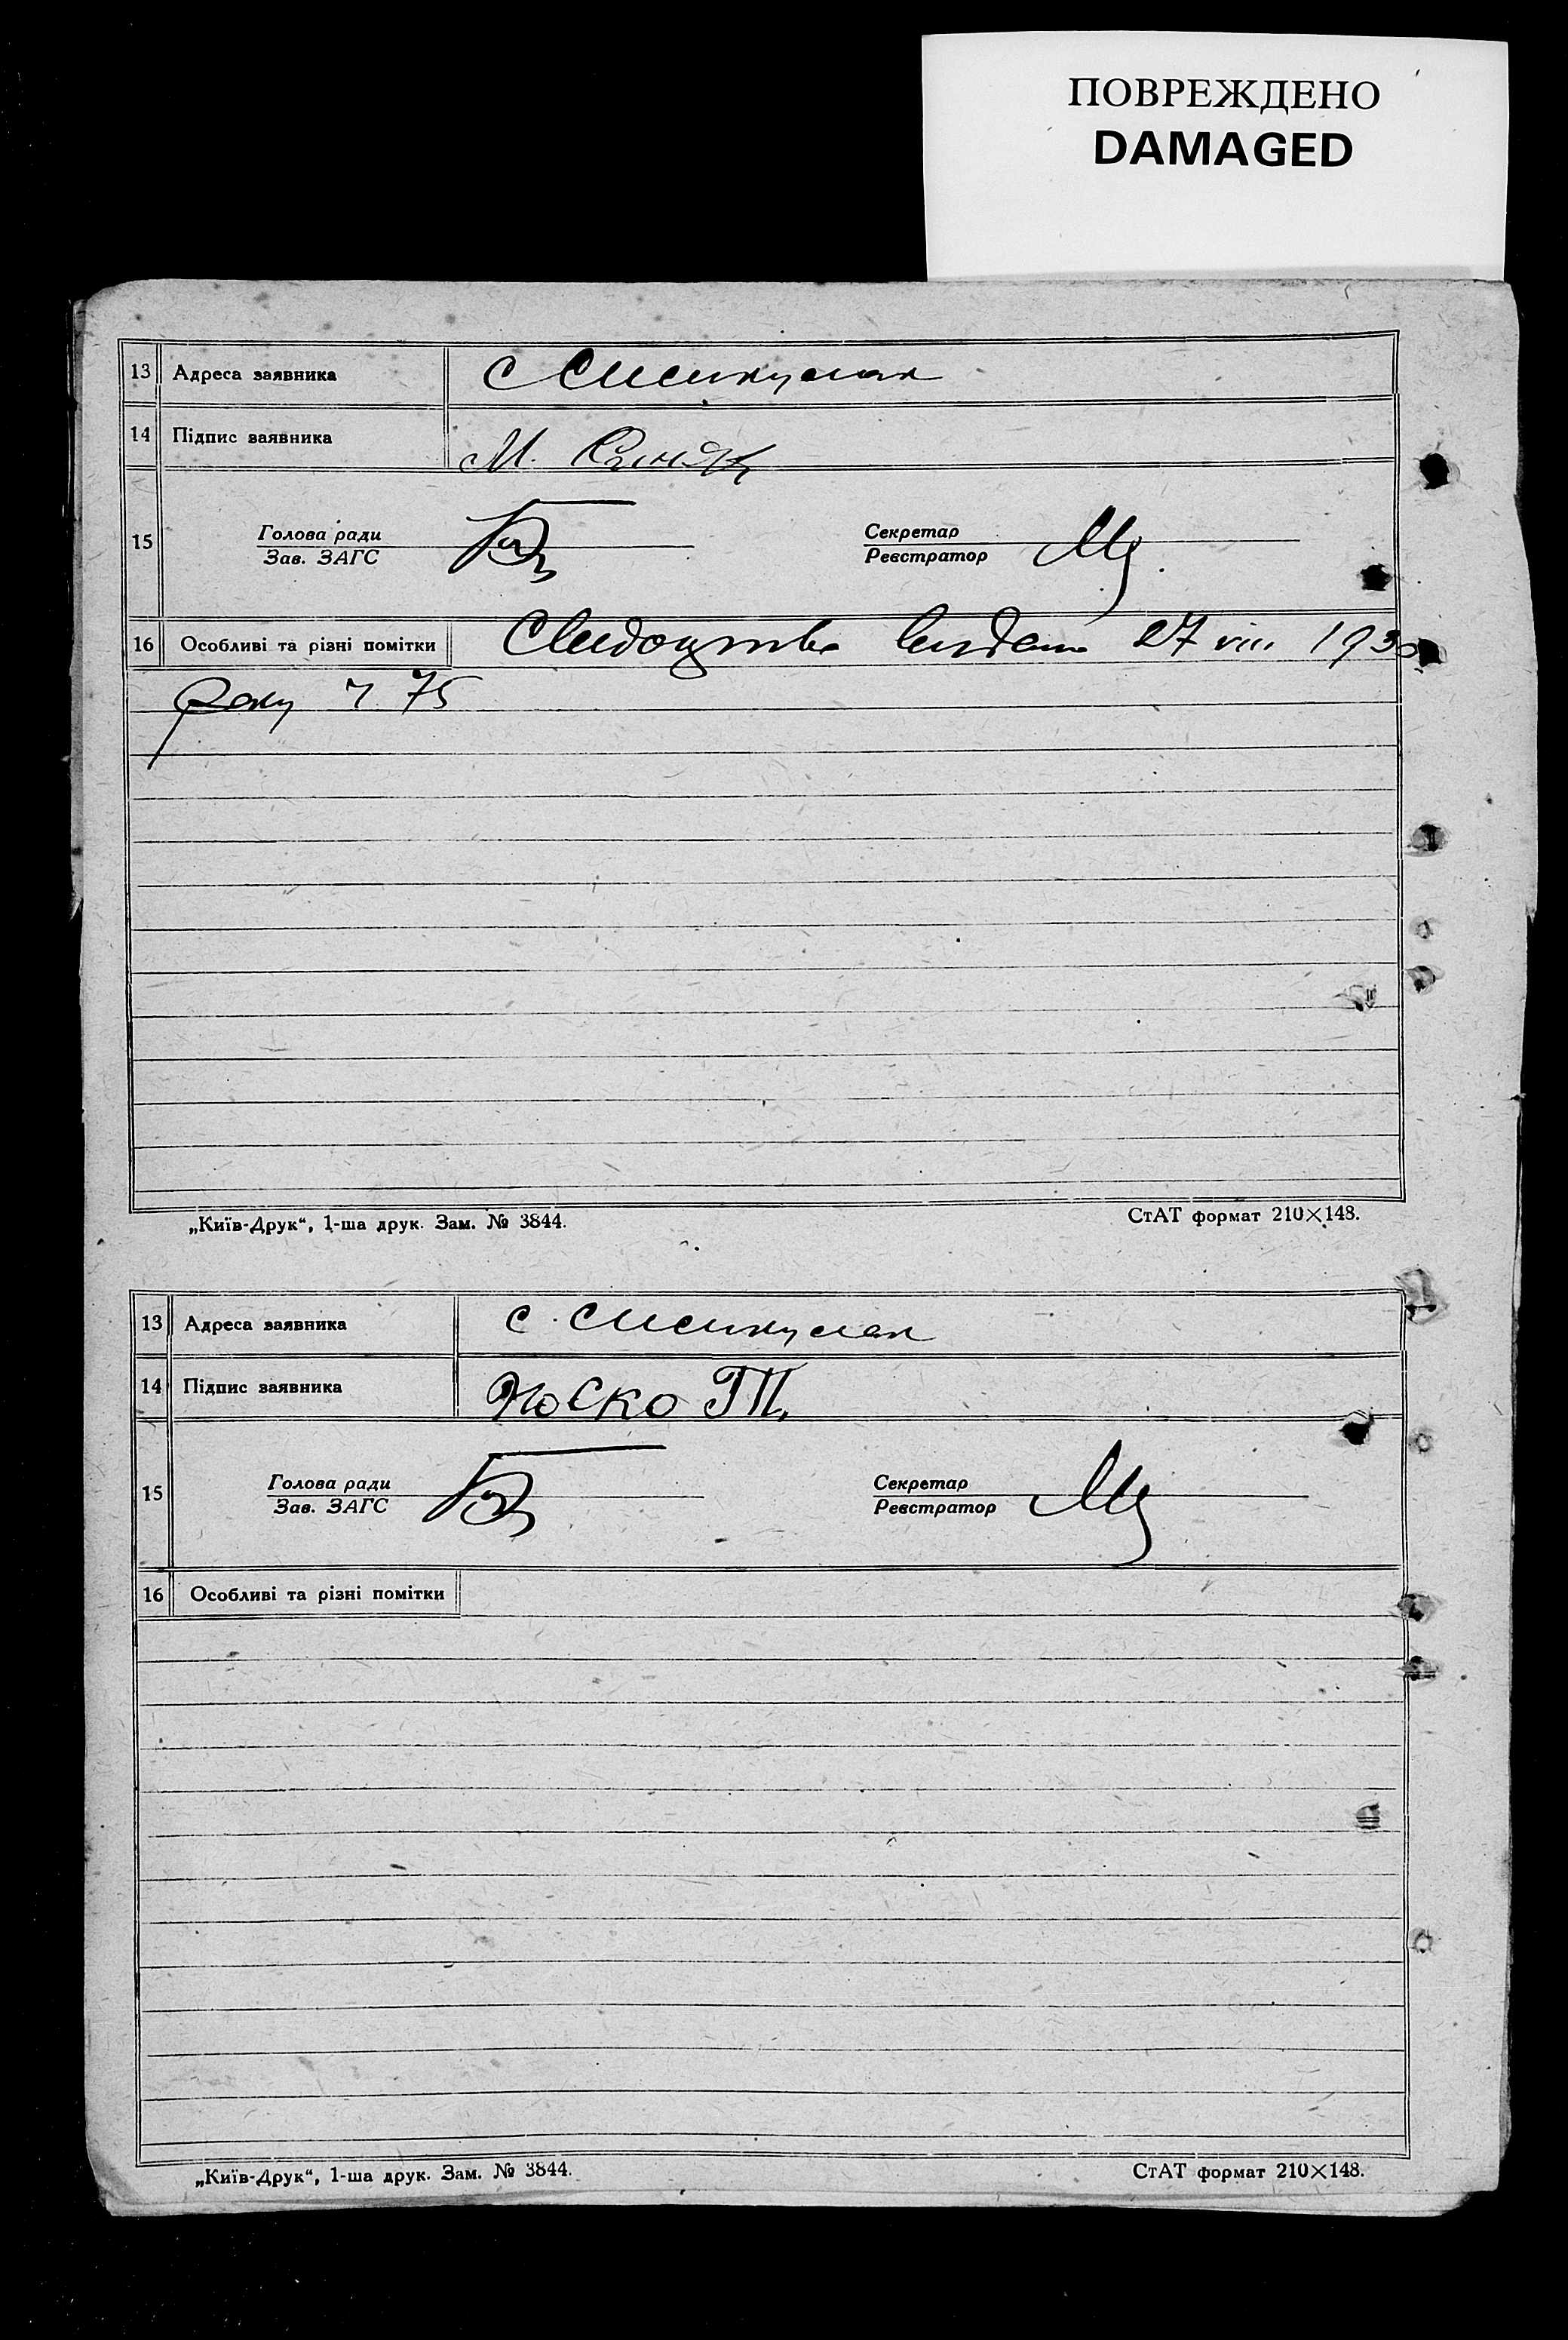 ПОВРЕЖДЕНО
DAMAGED
13 Адреса заявника с
14 Підпис заявника М.
15 Голова ради Секретар
Зав. ЗАГС Реєстратор
16 Особливі та різні помітки Свидоцтво видано 27 VIII 193
року ч 75
„Київ-Друк“, 1-ша друк. Зам. № 3844. СтАТ формат 210×148.
13 Адреса заявника с.
14 Підпис заявника Носко Т.
15 Голова ради Секретар
Зав. ЗАГС Реєстратор
16 Особливі та різні помітки
„Київ-Друк“, 1-ша друк. Зам. № 3844. СтАТ формат 210×148.